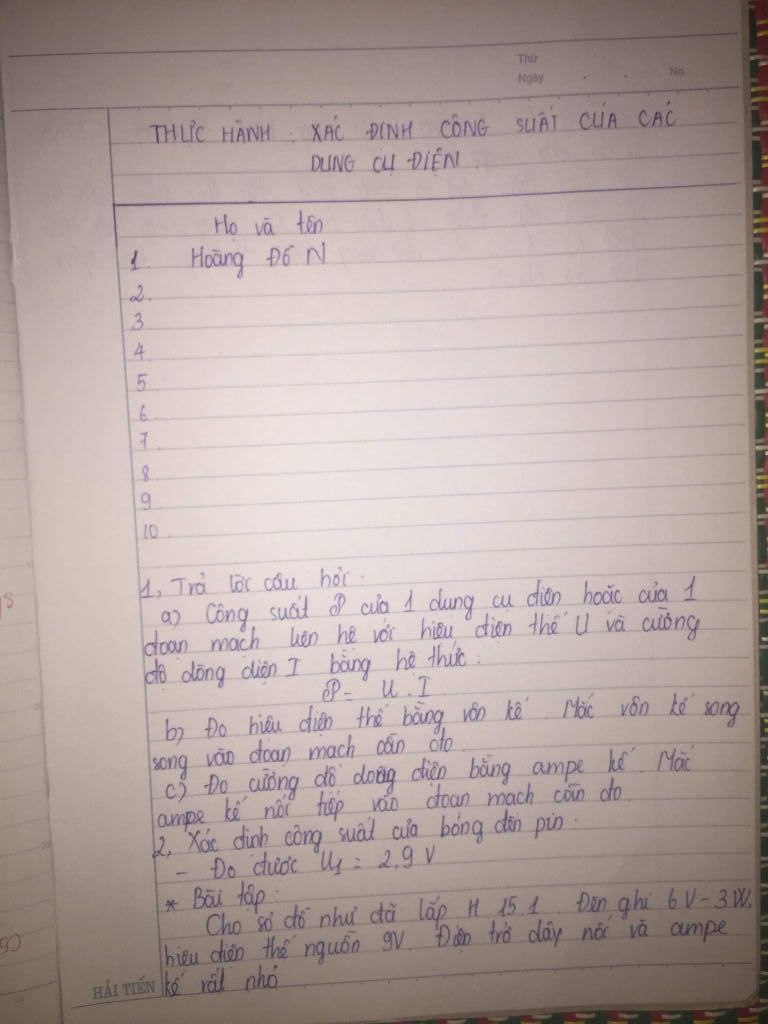 Thứ
Ngày . . No.
THỰC HÀNH : XÁC ĐỊNH CÔNG SUẤT CỦA CÁC
DỤNG CỤ ĐIỆN.
Họ và tên
1. Hoàng Đố N
2.
3
4
5
6
7
8
9
10.
1, Trả lời câu hỏi.
a) Công suất P của 1 dụng cụ điện hoặc của 1
đoạn mạch liên hệ với hiệu điện thế U và cường
độ dòng điện I bằng hệ thức :
P = U . I
b) Đo hiệu điện thế bằng vôn kế. Mắc vôn kế song
song vào đoạn mạch cần đo.
c) Đo cường độ dòng điện bằng ampe kế. Mắc
ampe kế nối tiếp vào đoạn mạch cần đo.
2, Xác định công suất của bóng đèn pin.
- Đo được U1 = 2,9 V
* Bài tập :
Cho sơ đồ như đã lắp H 15.1. Đèn ghi 6V-3W.
hiệu điện thế nguồn 9V. Điện trở dây nối và ampe
kế rất nhỏ
HẢI TIẾN